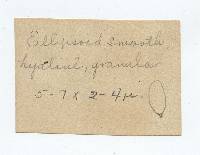 Ellipsoid smooth,
hyaline, granular
5-7 x 2-4µ.